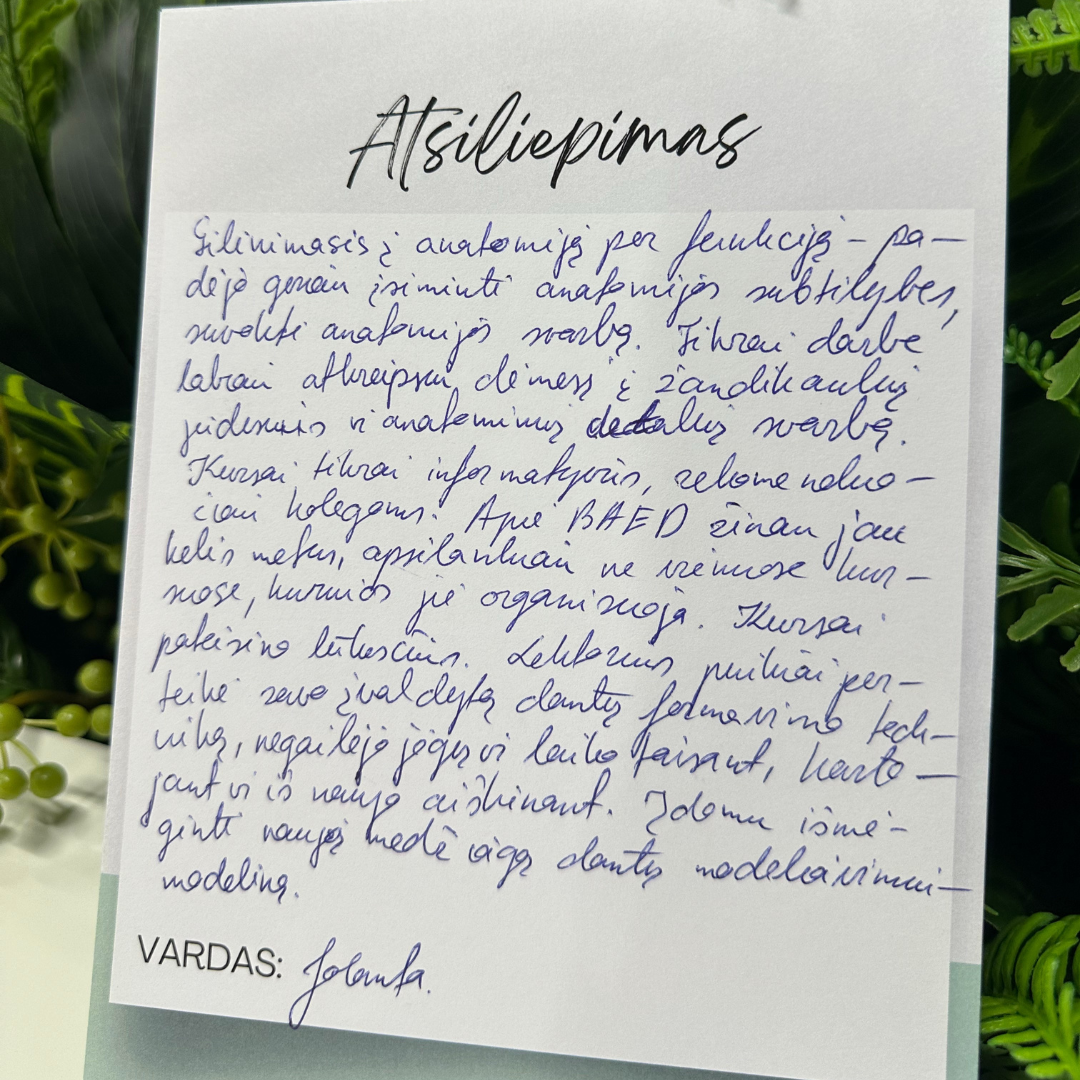 Atsiliepimas
Gilinimasis į anatomiją per funkciją – pa-
dėjo geriau įsiminti anatomijos subtilybes,
suvokti anatomijos svarbą. Tikrai darbe
labiau atkreipsiu dėmesį į žandikaulių
judesius ir anatominių detalių svarbą.
Kursai tikrai informatyvūs, rekomenduo-
čiau kolegoms. Apie BAED žinau jau
kelis metus, apsilankiau ne viename kur-
suose, kuriuos jie organizuoja. Kursai
pateisino lūkesčius. Lektorius puikiai per-
teikė savo įvaldytą dantų formavimo tech-
niką, negailėjo jėgų ir laiko taisant, karto-
jant ir iš naujo aiškinant. Įdomu išmė-
ginti naują medžiagą dantų modeliavimui-
modeliną.
VARDAS: Jolanta.